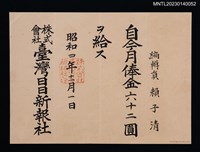 MNTL20230140052
編輯員 賴子清
自今月俸金六十二圓
ヲ給ス
昭和四年十二月一日
株式會社 臺灣日日新報社